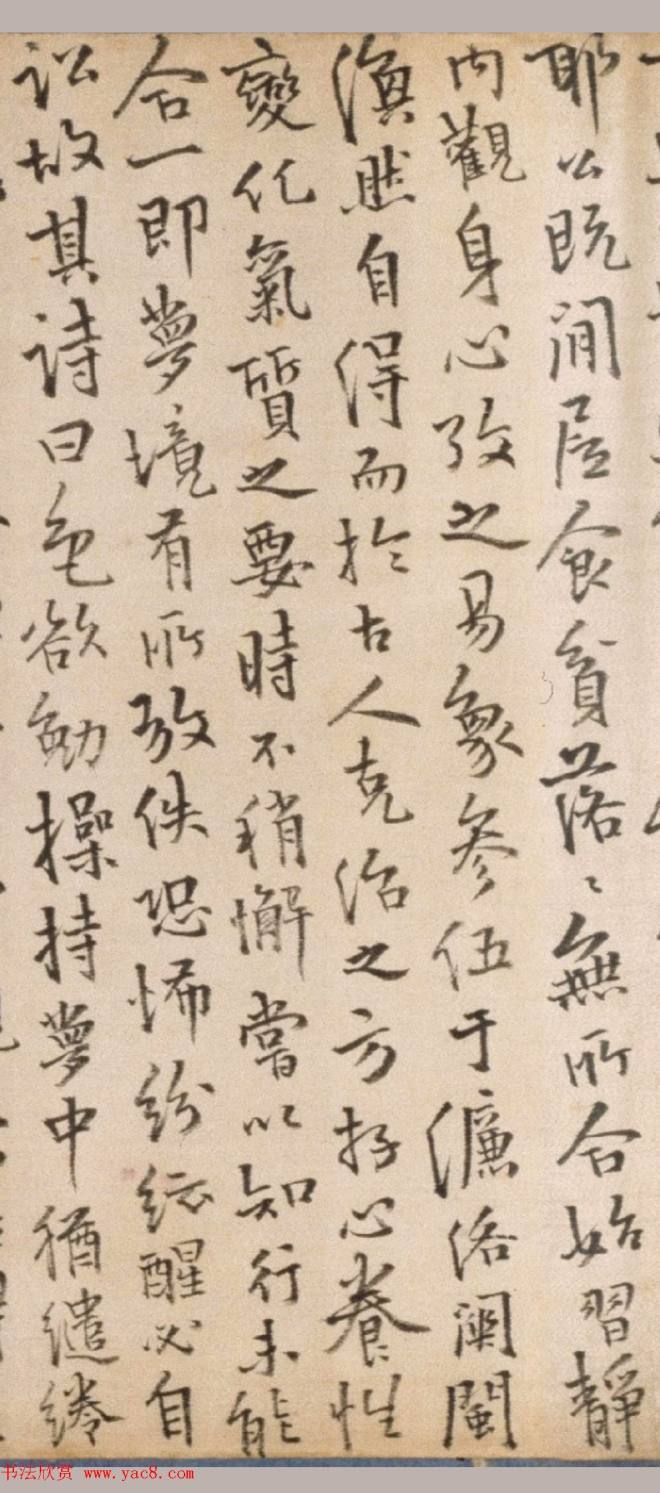 耶公既閒居食貧落〻無所合始習靜
內觀身心攷之易象參伍于濂洛闗閩
渙然自得而於古人克治之方存心養性
變化氣質之要時不稍懈嘗以知行未能
合一即夢境有所放佚恐怖紛紜醒必自
訟故其詩曰色欲勉操持夢中猶繾綣
书法欣赏 www.yac8.com